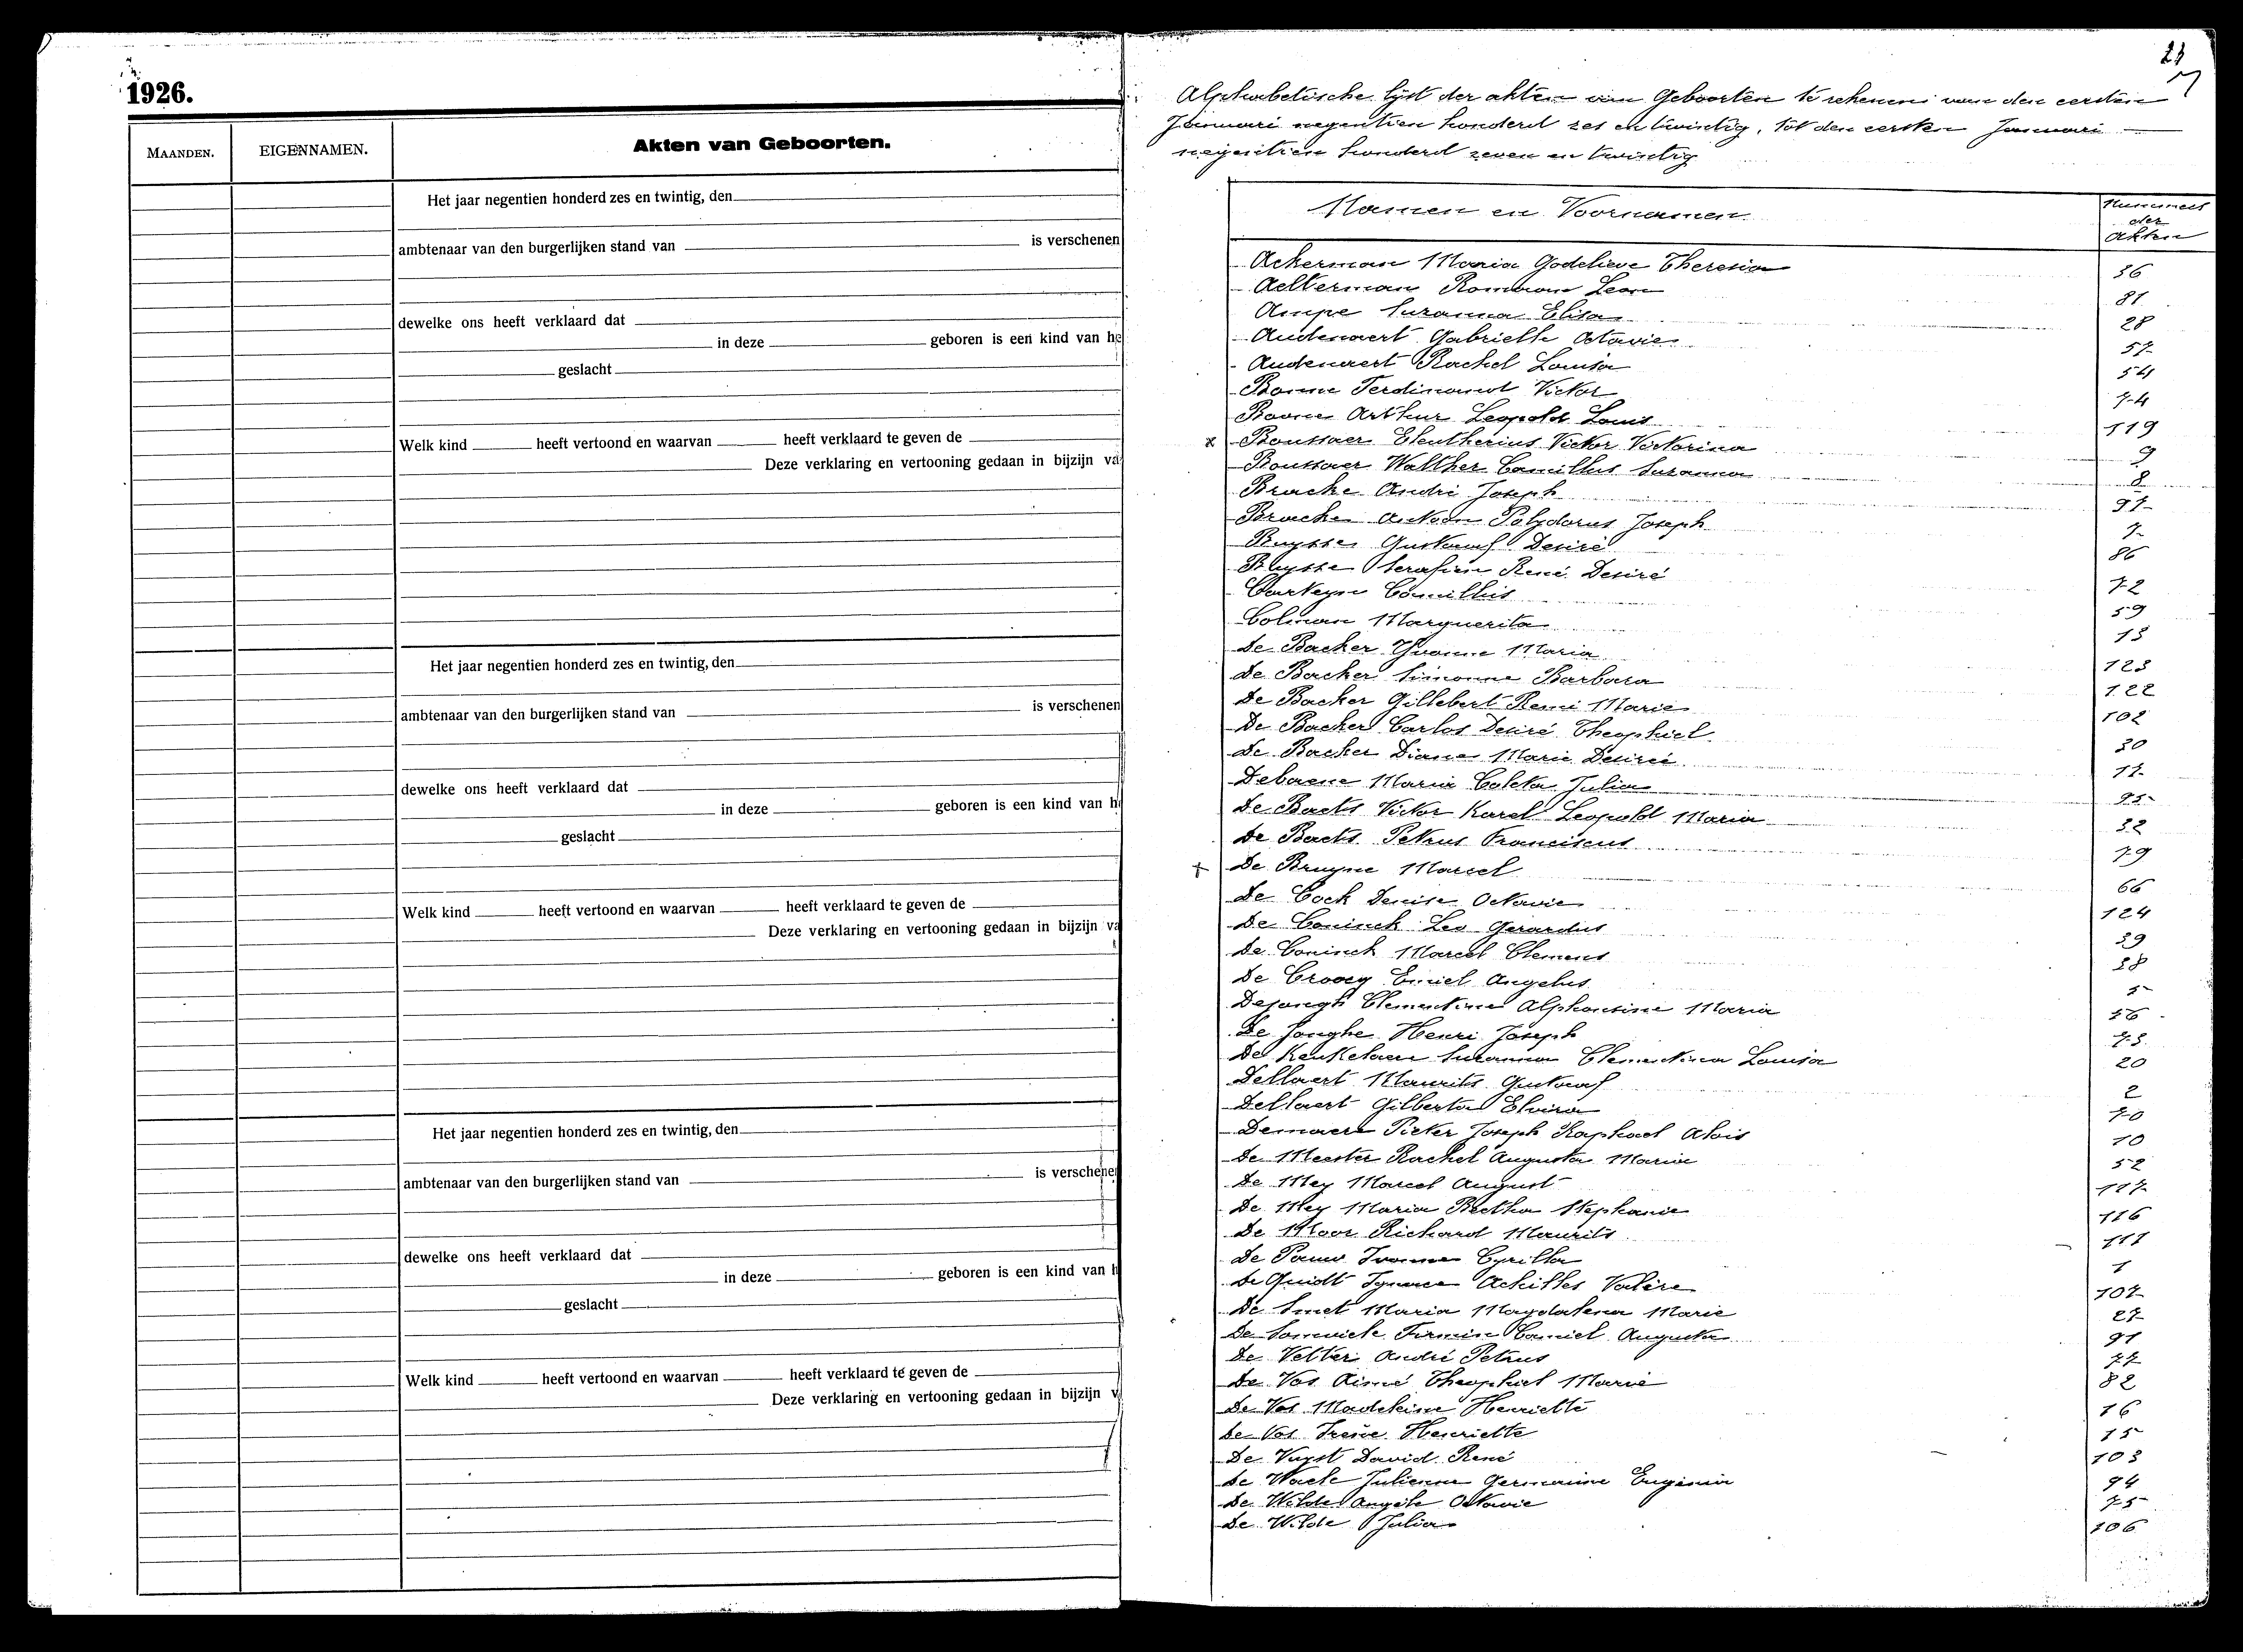 1926.
MAANDEN.
EIGENNAMEN.
Akten van Geboorten.
Het jaar negentien honderd zes en twintig, den
ambtenaar van den burgerlijken stand van is verschenen
dewelke ons heeft verklaard dat
in deze geboren is een kind van he
geslacht
Welk kind heeft vertoond en waarvan heeft verklaard te geven de
Deze verklaring en vertooning gedaan in bijzijn va
Het jaar negentien honderd zes en twintig, den
ambtenaar van den burgerlijken stand van is verschenen
dewelke ons heeft verklaard dat
in deze geboren is een kind van h
geslacht
Welk kind heeft vertoond en waarvan heeft verklaard te geven de
Deze verklaring en vertooning gedaan in bijzijn va
Het jaar negentien honderd zes en twintig, den
ambtenaar van den burgerlijken stand van is verschenen
dewelke ons heeft verklaard dat
in deze geboren is een kind van h
geslacht
Welk kind heeft vertoond en waarvan heeft verklaard te geven de
Deze verklaring en vertooning gedaan in bijzijn v
Alphabetische lijst der akten van Geboorten te rekenen van den eersten
Januari negentien honderd zes en twintig, tot den eersten Januari
negentien honderd zeven en twintig
Namen en Voornamen
Nummers der Akten
Ackerman Maria Godelieve Theresia 36
Aelterman Romain Leon 81
Ampe Suzanna Elisa 28
Audenaert Gabrielle Octavie 57
Audenaert Rachel Louisa 54
Boone Ferdinand Victor 74
Boone Arthur Leopold Louis 119
x Boussaer Eleutherius Victor Victorina 9
Boussaer Walther Camillus Suzanna 8
Bracke André Joseph 97
Bracke Antoon Polydorus Joseph 7
Buysse Gustaaf Desiré 86
Buysse Serafien René Desiré 72
Camillus 59
Colman Marguerita 13
De Backer Yvonne Maria 123
De Backer Simonne Barbara 122
De Backer Gillebert Remi Marie 102
De Backer Carlos Desiré Theophiel 30
De Backer Diana Marie Desireé 17
Debaene Maria Coleta Julia 95
De Baets Victor Karel Leopold Maria 32
De Baets Petrus Franciscus 79
+ De Bruyne Marcel 66
De Cock Denise Octavie 124
De Coninck Leo Gerardus 39
De Coninck Marcel Clement 38
De Croocq Emiel Angelus 5
Dejongh Clementina Alphonsine Maria 56
De Jonghe Henri Joseph 73
De Keukelaere Suzanna Clementina Louisa 20
Dellaert Maurits Gustaaf 2
Dellaert Gilberta Elvira 70
Demaere Pieter Joseph Raphael Alois 10
De Meester Rachel Augusta Maria 52
De Mey Marcel August 117
De Mey Maria Bertha Stephanie 116
De Moor Richard Maurits 111
De Pauw Ivonna Cyrilla 1
De Guidt Ignace Achilles Valère 107
De Smet Maria Magdalena Marie 27
De Firmin Camiel Augusta 91
De Vetter André Petrus 77
De Vos Aimé Theophiel Marie 82
De Vos Madeleine Henriette 16
De Vos Irène Henriette 15
De Vuyst David René 103
De Waele Julienne Germaine Eugenia 94
De Wilde Angèle Octavie 75
De Wilde Julia 106